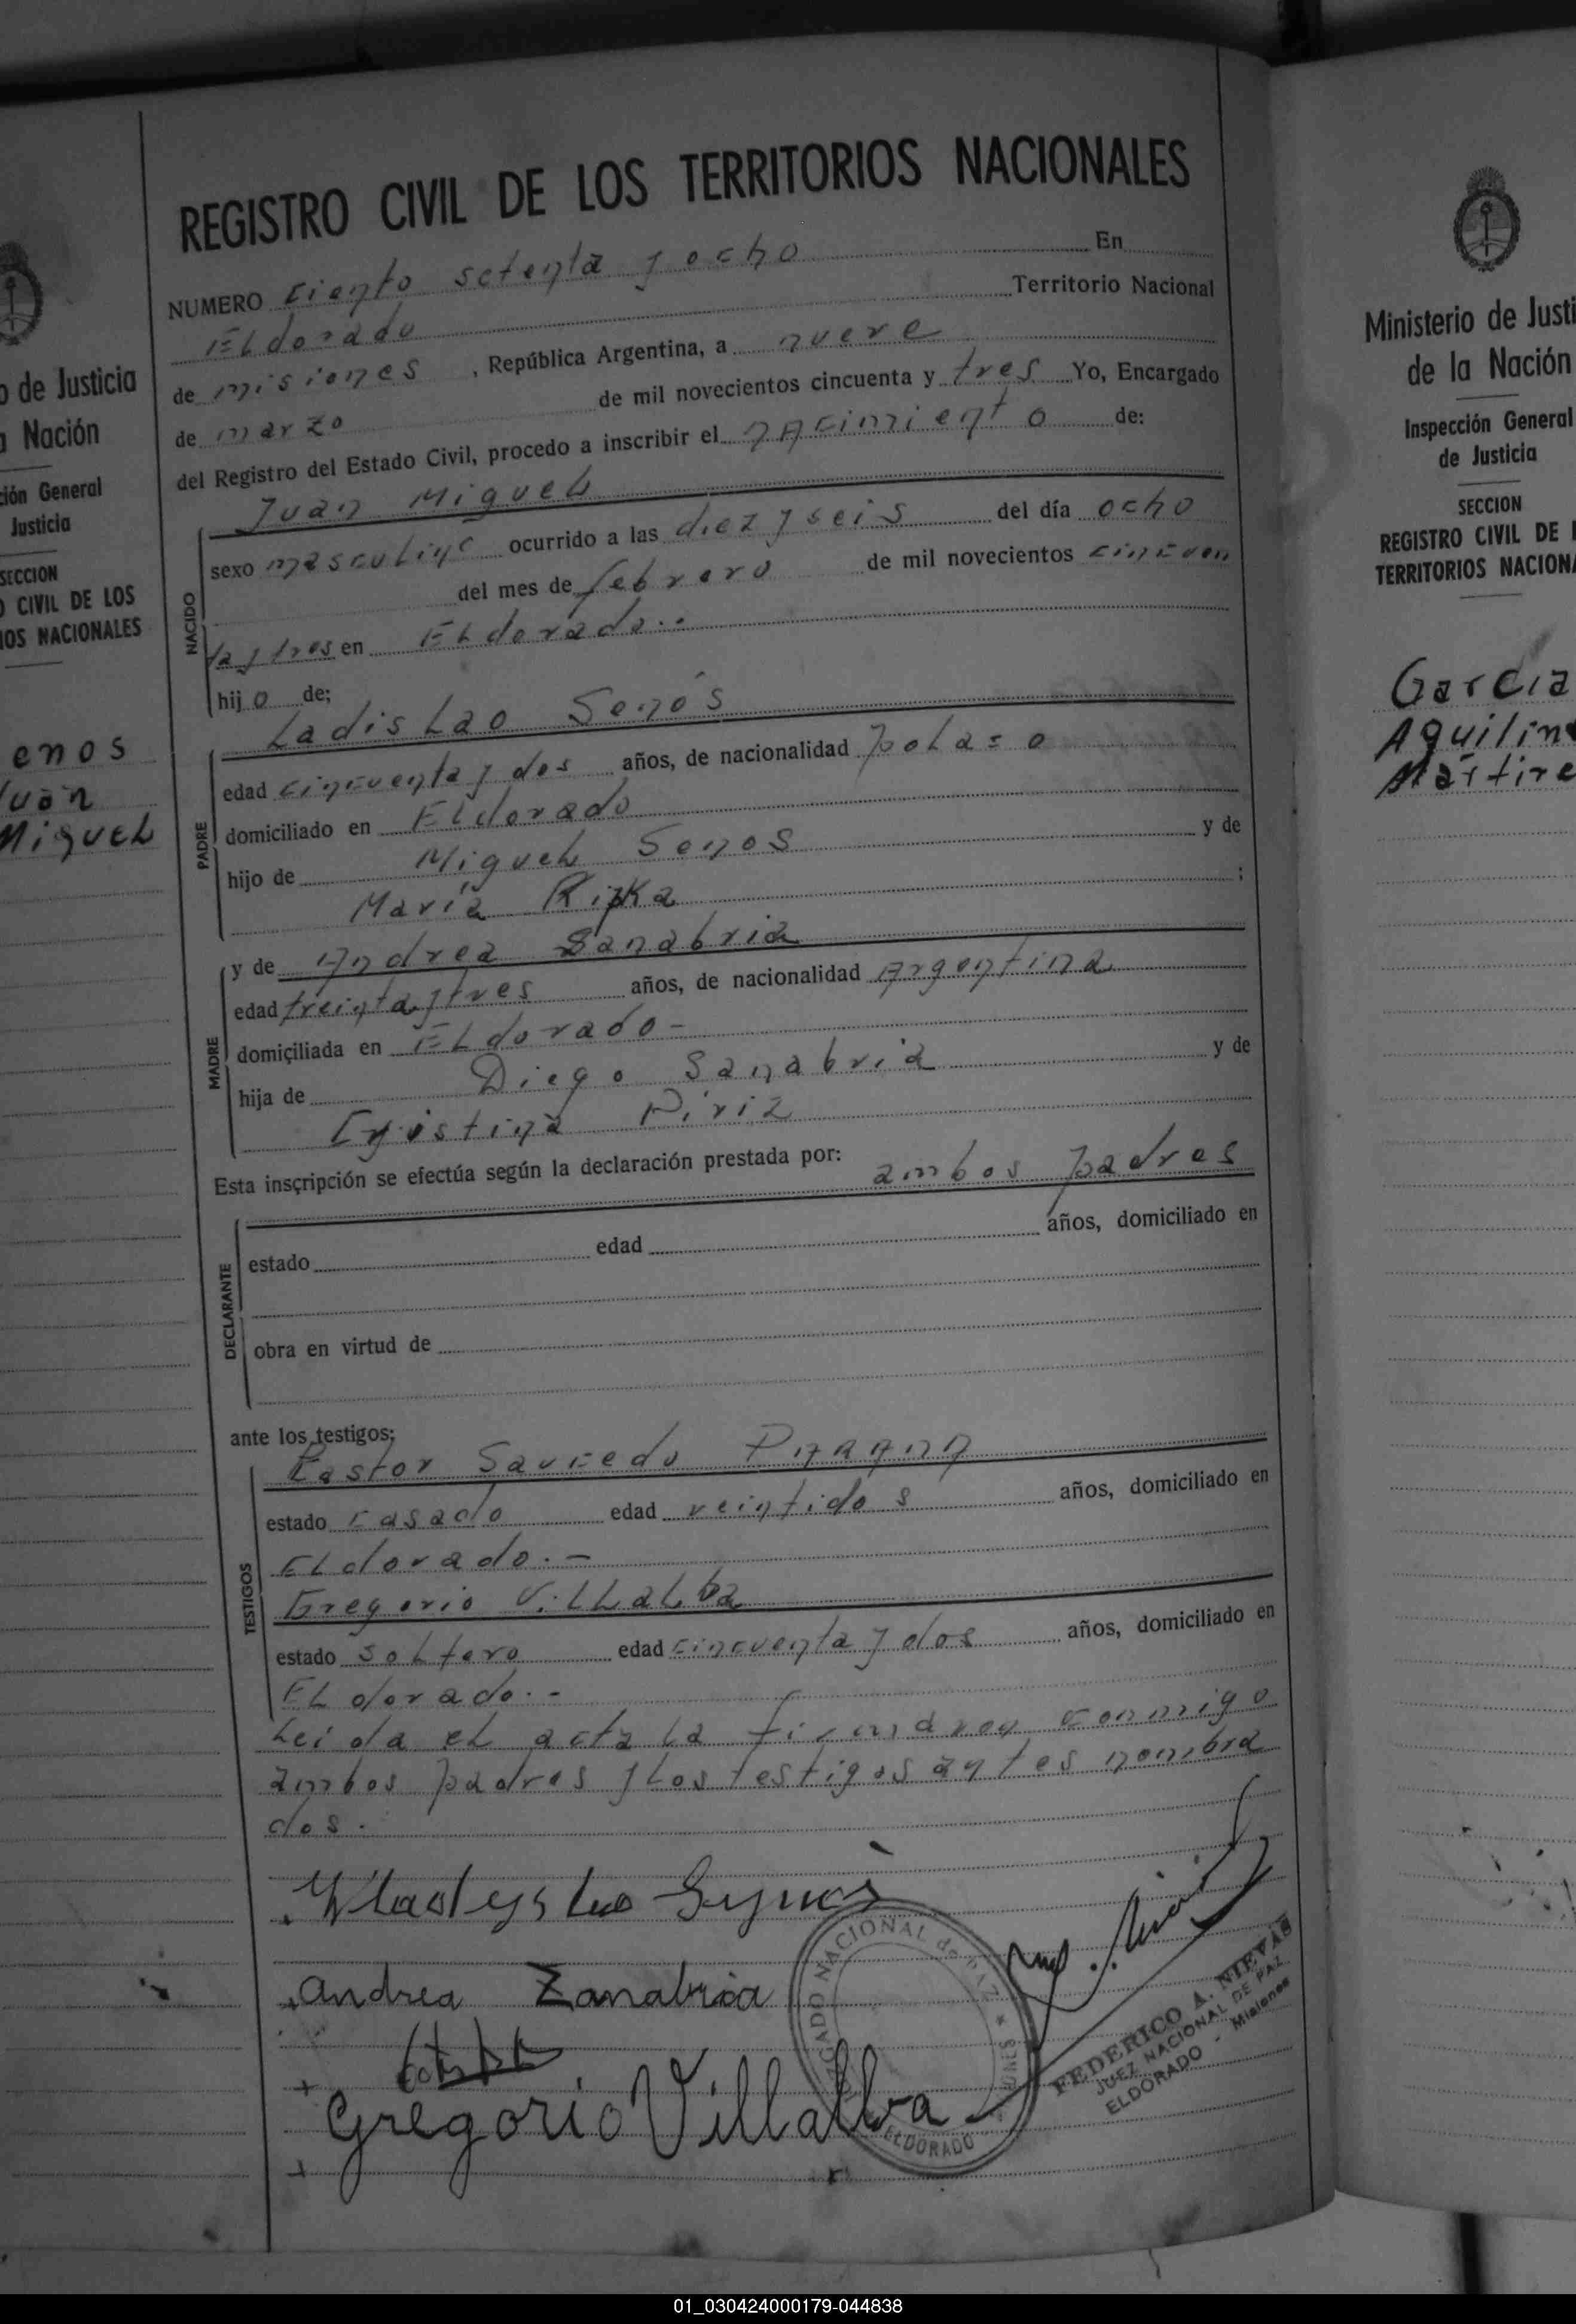 o de Justicia
a Nación
ción General
Justicia
SECCION
O CIVIL DE LOS
IOS NACIONALES
enos
Juan
Miguel
REGISTRO CIVIL DE LOS TERRITORIOS NACIONALES
NUMERO ciento setenta y ocho En
Eldorado Territorio Nacional
de misiones, República Argentina, a nueve
de marzo de mil novecientos cincuenta y tres Yo, Encargado
del Registro del Estado Civil, procedo a inscribir el nacimiento de:
NACIDO
Juan Miguel
sexo masculino ocurrido a las diez y seis del día ocho
del mes de febrero de mil novecientos cincuen
ta y tres en Eldorado..
hijo de;
PADRE
Ladislao Senós
edad cincuenta y dos años, de nacionalidad polaco
domiciliado en Eldorado
hijo de Miguel Senos y de
María Ripka ;
MADRE
y de Andrea Sanabria
edad treinta y tres años, de nacionalidad Argentina
domiciliada en Eldorado-
hija de Diego Sanabria y de
Cristina Piriz
Esta inscripción se efectúa según la declaración prestada por: ambos padres
DECLARANTE
estado edad años, domiciliado en
obra en virtud de
ante los testigos:
TESTIGOS
Pastor Saucedo
estado casado edad veintidos años, domiciliado en
Eldorado.-
Gregorio Villalba
estado soltero edad cincuenta y dos años, domiciliado en
Eldorado.-
Leida el acta la firmaron conmigo
ambos padres y los testigos antes nombra
dos.
Andrea Zanabria
Gregorio Villalva
JUZGADO NACIONAL de PAZ
ELDORADO
FEDERICO A. NIEVAS
JUEZ NACIONAL DE PAZ
ELDORADO - Misiones
Ministerio de Justi
de la Nación
Inspección General
de Justicia
SECCION
REGISTRO CIVIL DE
TERRITORIOS NACION
Garcia
Aquilin
Martire
01_030424000179-044838